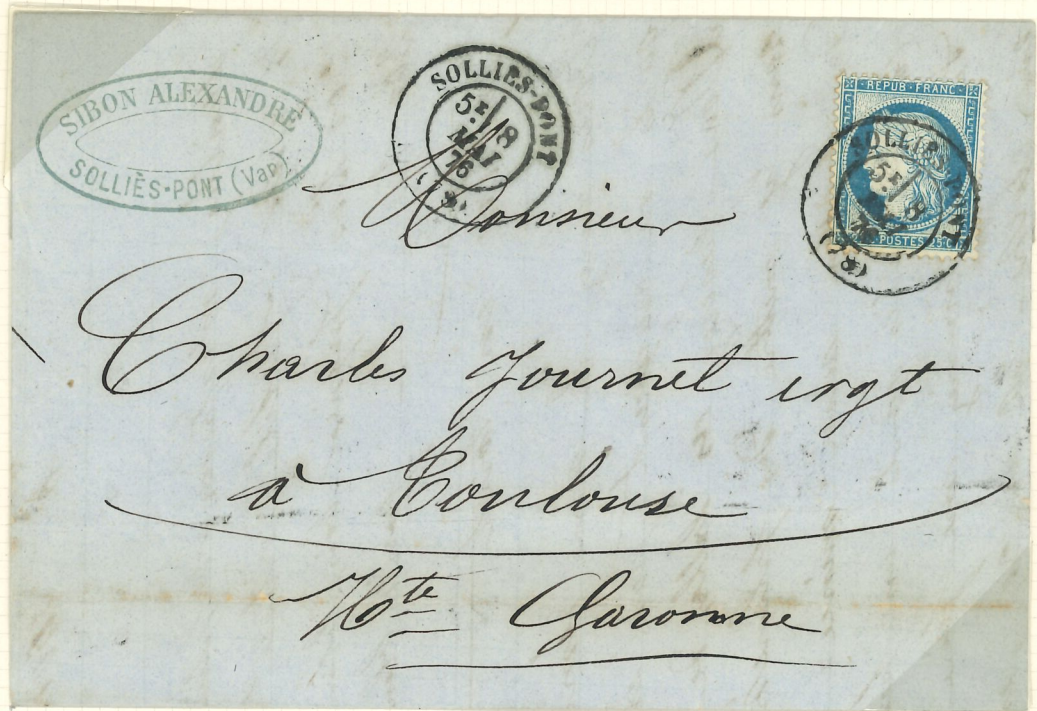 SIBON ALEXANDRE
SOLLIÈS-PONT (Var)
SOLLIES-PONT
5E 8
MAI
76
REPUB·FRANC
POSTES 25 C
SOLLIES-PONT
5E 8
76
Monsieur
Charles Journet
à Toulouse
Hte Garonne